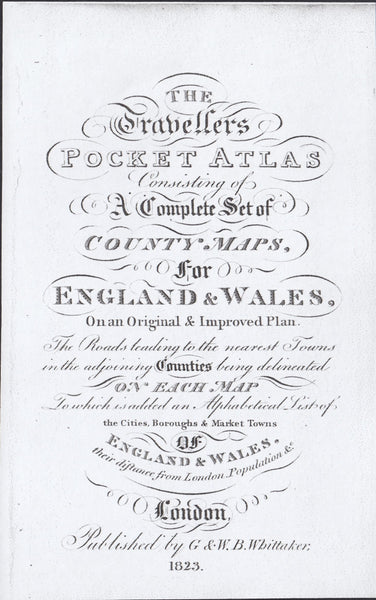 THE
Travellers
POCKET ATLAS
Consisting of
A Complete Set of
COUNTY MAPS,
For
ENGLAND & WALES,
On an Original & Improved Plan.
The Roads leading to the nearest Towns
in the adjoining Counties being delineated
ON EACH MAP
To which is added an Alphabetical List of
the Cities, Boroughs & Market Towns
OF
ENGLAND & WALES,
their distance from London Population &c
London,
Published by G & W. B. Whittaker,
1823.